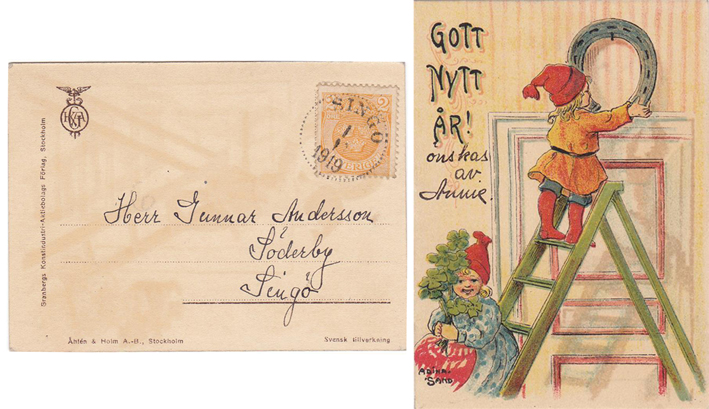 Granbergs Konstindustri-Aktiebolags Förlag, Stockholm
2
SINGÖ
1
1
1919
SVERIGE
Herr Gunnar Andersson
Söderby
Singö
Åhlén & Holm A.-B., Stockholm
Svensk tillverkning
GOTT
NYTT
ÅR!
önskas
av
Annie.